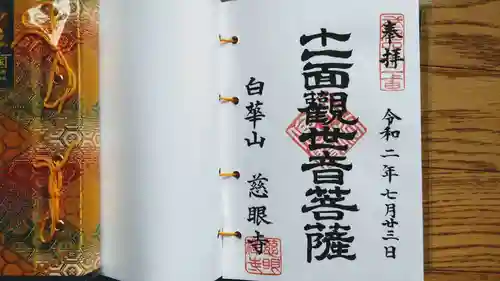 奉拝
令和二年七月廿三日
十一面觀世音菩薩
白華山
慈眼寺